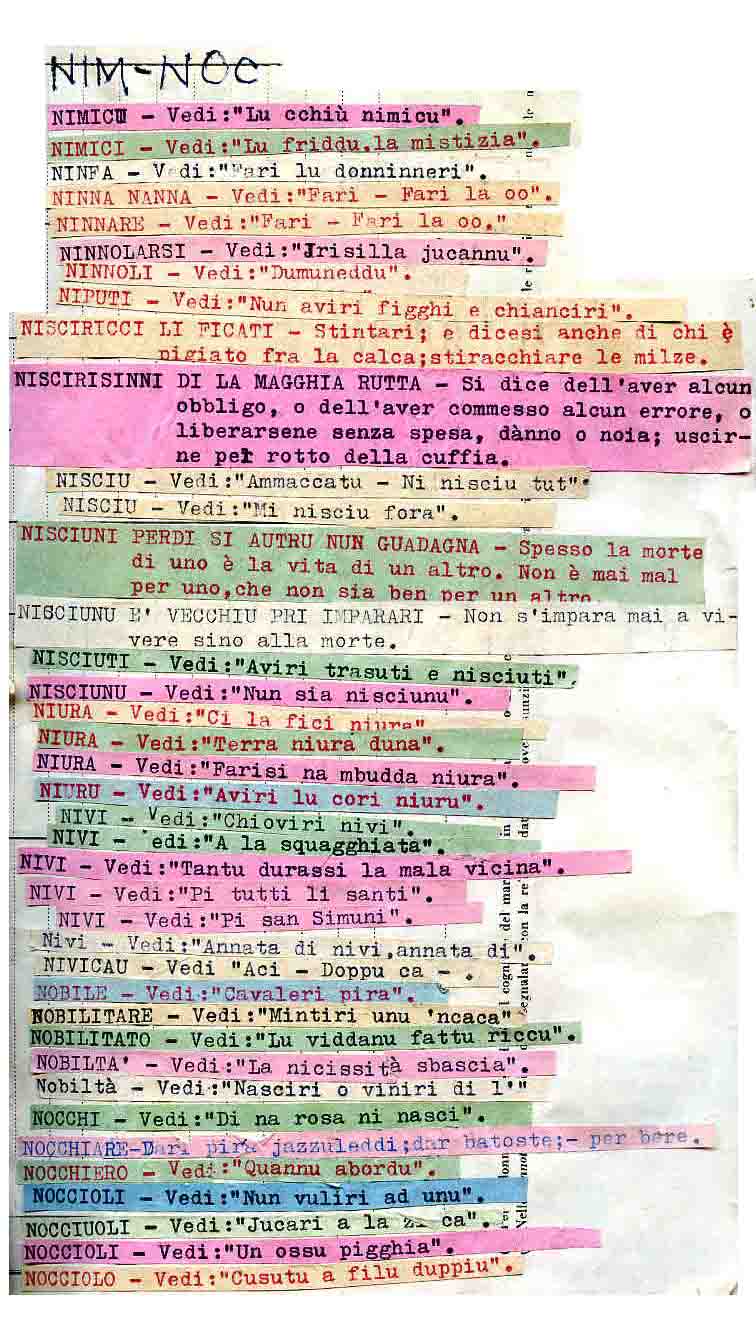 NIM-NOC
NIMICU - Vedi:"Lu cchiù nimicu".
NIMICI - Vedi:"Lu friddu.la mistizia".
NINFA - Vedi:"Fari lu donninneri".
NINNA NANNA - Vedi:"Fari - Fari la oo".
NINNARE - Vedi:"Fari - Fari la oo."
NINNOLARSI - Vedi:"Irisilla jucannu".
NINNOLI - Vedi:"Dumuneddu".
NIPUTI - Vedi:"Nun aviri figghi e chianciri".
NISCIRICCI LI FICATI - Stintari; e dicesi anche di chi è
pigiato fra la calca;stiracchiare le milze.
NISCIRISINNI DI LA MAGGHIA RUTTA - Si dice dell'aver alcun
obbligo, o dell'aver commesso alcun errore, o
liberarsene senza spesa, dànno o noia; uscir-
ne pel rotto della cuffia.
NISCIU - Vedi:"Ammaccatu - Ni nisciu tut".
NISCIU - Vedi:"Mi nisciu fora".
NISCIUNI PERDI SI AUTRU NUN GUADAGNA - Spesso la morte
di uno è la vita di un altro. Non è mai mal
per uno,che non sia ben per un altro.
NISCIUNU E' VECCHIU PRI IMPARARI - Non s'impara mai a vi-
vere sino alla morte.
NISCIUTI - Vedi:"Aviri trasuti e nisciuti".
NISCIUNU - Vedi:"Nun sia nisciunu".
NIURA - Vedi:"Ci la fici niura"
NIURA - Vedi:"Terra niura duna".
NIURA - Vedi:"Farisi na mbudda niura".
NIURU - Vedi:"Aviri lu cori niuru".
NIVI - Vedi:"Chioviri nivi".
NIVI - edi:"A la squagghiata".
NIVI - Vedi:"Tantu durassi la mala vicina".
NIVI - Vedi:"Pi tutti li santi".
NIVI - Vedi:"Pi san Simuni".
Nivi - Vedi:"Annata di nivi,annata di".
NIVICAU - Vedi "Aci - Doppu ca - .
NOBILE - Vedi:"Cavaleri pira".
NOBILITARE - Vedi:"Mintiri unu 'ncaca"
NOBILITATO - Vedi:"Lu viddanu fattu riccu".
NOBILTA' - Vedi:"La nicissità sbascia".
Nobiltà - Vedi:"Nasciri o viniri di l'"
NOCCHI - Vedi:"Di na rosa ni nasci".
NOCCHIARE-Dari pira jazzuleddi;dar batoste;- per bere.
NOCCHIERO - Vedi:"Quannu abordu".
NOCCIOLI - Vedi:"Nun vuliri ad unu".
NOCCIUOLI - Vedi:"Jucari a la ca".
NOCCIOLI - Vedi:"Un ossu pigghia".
NOCCIOLO - Vedi:"Cusutu a filu duppiu".